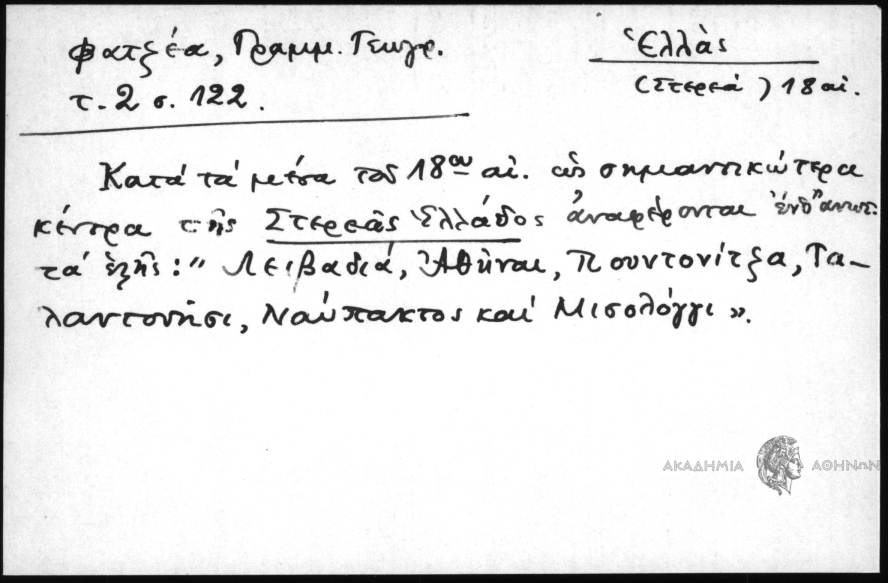 Φατζέα, Γραμμ. Γεωγρ.
τ. 2 σ. 122.
Ἑλλὰς
(Στερεά) 18 αἰ.
Κατά τά μέσα τοῦ 18ου αἰ. ὡς σημαντικώτερα
κέντρα τῆς Στερεᾶς Ἑλλάδος ἀναφέρονται ἐνθ' ἀνωτ.
τά ἑξῆς: " Λειβαδιά, Ἀθῆναι, Πουντονίτζα, Τα-
λαντονήσι, Ναύπακτος καί Μισολόγγι ».
ΑΚΑΔΗΜΙΑ ΑΘΗΝΩΝ